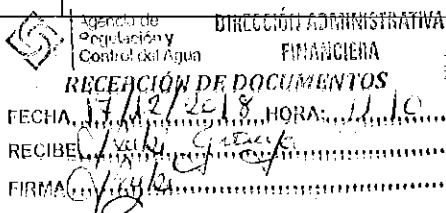 Agencia de
Regulación y
Control del Agua
DIRECCIÓN ADMINISTRATIVA
FINANCIERA
RECEPCIÓN DE DOCUMENTOS
FECHA 17/12/2018 HORA:
RECIBE
FIRMA